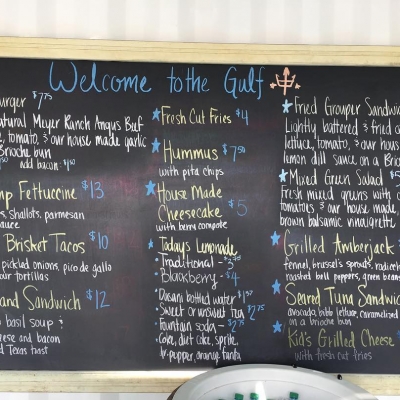 Welcome to the Gulf
urger $7.75
atural Meyer Ranch Angus Beef
e, tomato, & our house made garlic
Brioche bun
add bacon $1.50
mp Fettuccine $13
s, shallots, parmesan
sauce
Brisket Tacos $10
pickled onions, pico de gallo
our tortillas
and Sandwich $12
basil soup &
eese and bacon
d Texas toast
Fresh Cut Fries $4
Hummus $7.50
with pita chips
House Made
Cheesecake $5
with berry compote
Today's Lemonade
Traditional -
Blackberry - $4
Dasani bottled water
Sweet or unsweet tea $2.75
Fountain soda - $2.75
Coke, diet coke, sprite,
dr. pepper, orange fanta
Fried Grouper Sandwic
Lightly battered & fried
lettuce, tomato, & our hous
lemon dill sauce on a Brio
Mixed Green Salad $5
Fresh mixed greens with
tomatoes & our house made
brown balsamic vinaigrette
Grilled Amberjack
fennel, brussel's sprouts,
roasted bell peppers, green beans
Seared Tuna Sandwic
avocado, bibb lettuce, caramelized
on a brioche bun
Kid's Grilled Cheese
with fresh cut fries